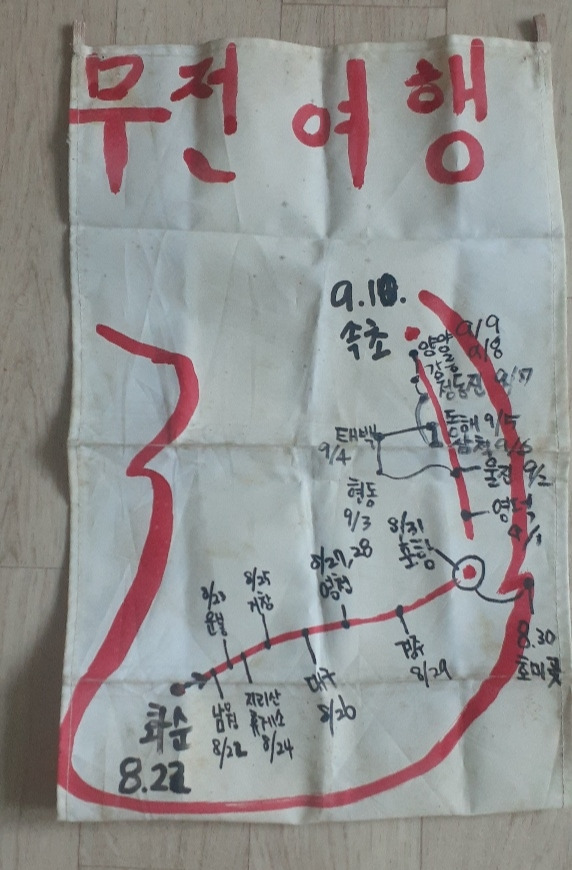 무전여행
9.10.
속초
양양 9/9
강릉 9/8
정동진 9/7
동해 9/5
삼척 9/6
태백
9/4
울진 9/2
영덕
9/1
현동
9/3
8/31
포항
8.30
호미곶
8/27, 28
영천
경주
8/29
8/25
거창
대구
8/26
8/23
운봉
지리산
휴게소
8/24
남원
8/22
화순
8.22